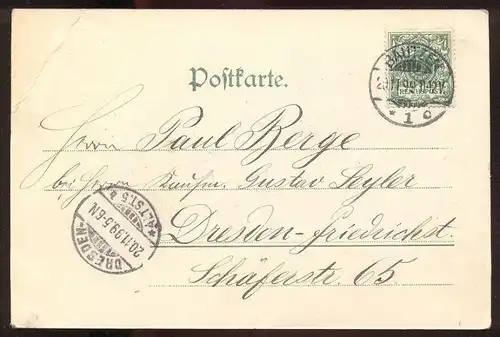 Postkarte.
BAUTZEN
* 1 c
REICHSPOST
Herrn Paul Berge
bei Herrn Kaufm. Gustav Seyler
Dresden-Friedrichst.
Schäferstr. 65.
DRESDEN-
*ALTST. 5
20.11.99.5-6N